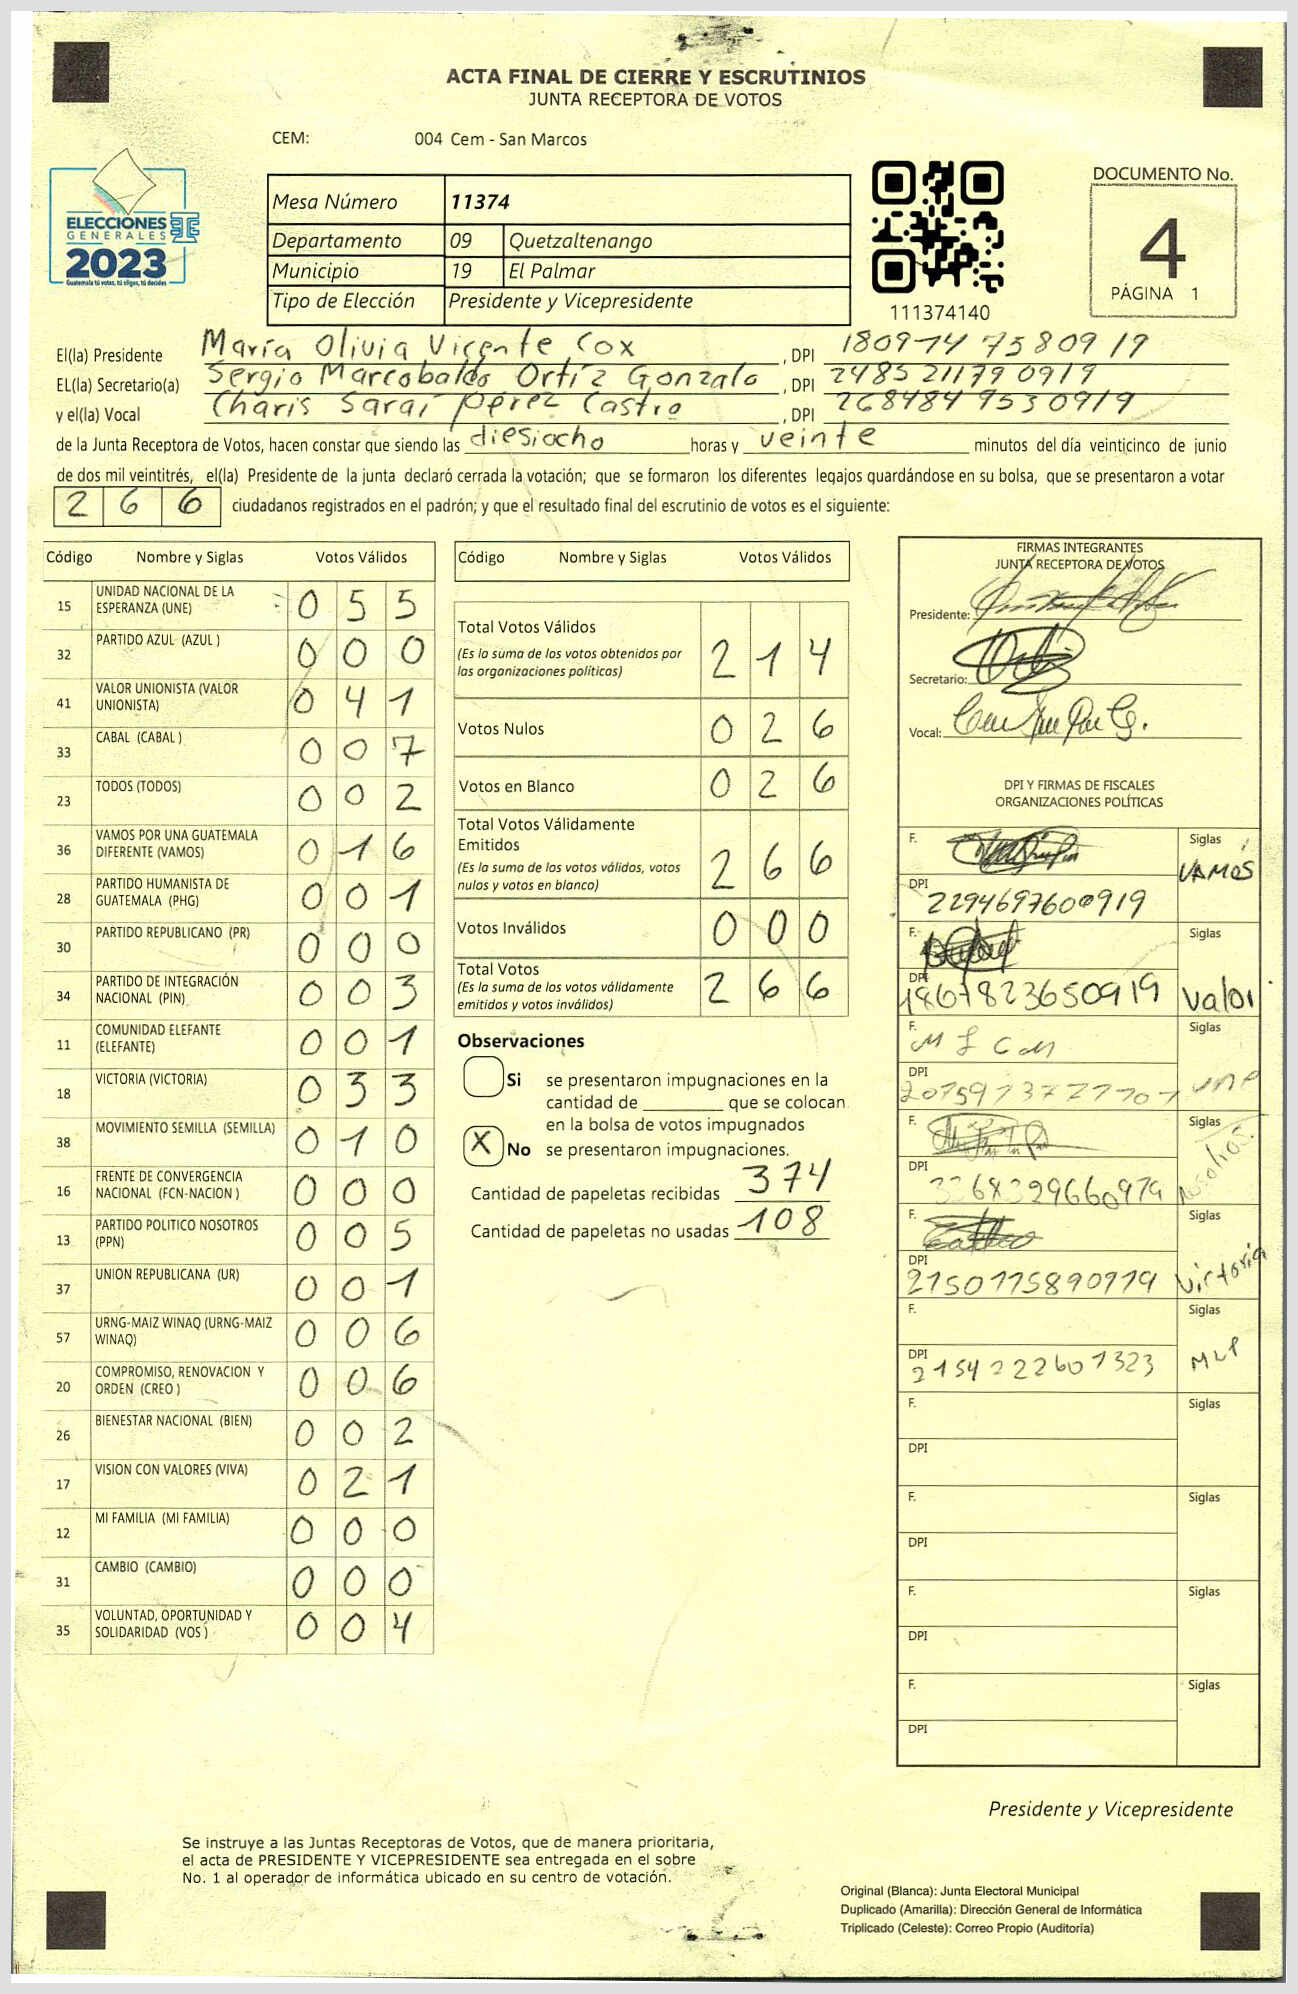 ACTA FINAL DE CIERRE Y ESCRUTINIOS
JUNTA RECEPTORA DE VOTOS
CEM: 004 Cem - San Marcos
ELECCIONES
GENERALES
2023
Guatemala tú votas, tú eliges, tú decides
Mesa Número 11374
Departamento 09 Quetzaltenango
Municipio 19 El Palmar
Tipo de Elección Presidente y Vicepresidente
111374140
DOCUMENTO No.
4
PÁGINA 1
El(la) Presidente María Olivia Vicente Cox , DPI 1809747580919
EL(la) Secretario(a) Sergio Marcobaldo Ortíz Gonzalo , DPI 2485211790919
y el(la) Vocal Charis Saraí pérez Castro , DPI 2684849530919
de la Junta Receptora de Votos, hacen constar que siendo las diesiocho horas y veinte minutos del día veinticinco de junio
de dos mil veintitrés, el(la) Presidente de la junta declaró cerrada la votación; que se formaron los diferentes legajos guardándose en su bolsa, que se presentaron a votar
266 ciudadanos registrados en el padrón; y que el resultado final del escrutinio de votos es el siguiente:
Código Nombre y Siglas Votos Válidos
15 UNIDAD NACIONAL DE LA ESPERANZA (UNE) 055
32 PARTIDO AZUL (AZUL ) 000
41 VALOR UNIONISTA (VALOR UNIONISTA) 041
33 CABAL (CABAL ) 007
23 TODOS (TODOS) 002
36 VAMOS POR UNA GUATEMALA DIFERENTE (VAMOS) 016
28 PARTIDO HUMANISTA DE GUATEMALA (PHG) 001
30 PARTIDO REPUBLICANO (PR) 000
34 PARTIDO DE INTEGRACIÓN NACIONAL (PIN) 003
11 COMUNIDAD ELEFANTE (ELEFANTE) 001
18 VICTORIA (VICTORIA) 033
38 MOVIMIENTO SEMILLA (SEMILLA) 010
16 FRENTE DE CONVERGENCIA NACIONAL (FCN-NACION ) 000
13 PARTIDO POLITICO NOSOTROS (PPN) 005
37 UNION REPUBLICANA (UR) 001
57 URNG-MAIZ WINAQ (URNG-MAIZ WINAQ) 006
20 COMPROMISO, RENOVACION Y ORDEN (CREO ) 006
26 BIENESTAR NACIONAL (BIEN) 002
17 VISION CON VALORES (VIVA) 021
12 MI FAMILIA (MI FAMILIA) 000
31 CAMBIO (CAMBIO) 000
35 VOLUNTAD, OPORTUNIDAD Y SOLIDARIDAD (VOS ) 004
Código Nombre y Siglas Votos Válidos
Total Votos Válidos 214
(Es la suma de los votos obtenidos por
las organizaciones políticas)
Votos Nulos 026
Votos en Blanco 026
Total Votos Válidamente
Emitidos 266
(Es la suma de los votos válidos, votos
nulos y votos en blanco)
Votos Inválidos 000
Total Votos 266
(Es la suma de los votos válidamente
emitidos y votos inválidos)
Observaciones
Si se presentaron impugnaciones en la
cantidad de ________ que se colocan
en la bolsa de votos impugnados
X No se presentaron impugnaciones.
Cantidad de papeletas recibidas 374
Cantidad de papeletas no usadas 108
FIRMAS INTEGRANTES
JUNTA RECEPTORA DE VOTOS
Presidente:
Secretario:
Vocal:
DPI Y FIRMAS DE FISCALES
ORGANIZACIONES POLÍTICAS
F. Siglas
VAMOS
DPI
2294697600919
F. Siglas
DPI
1867823650919 Valor
F. Siglas
M J C M
DPI
une
F. Siglas
DPI
Nosotros
F. Siglas
DPI
2150115890919 Victoria
F. Siglas
DPI
2154222601323 MLP
F. Siglas
DPI
F. Siglas
DPI
F. Siglas
DPI
F. Siglas
DPI
Presidente y Vicepresidente
Se instruye a las Juntas Receptoras de Votos, que de manera prioritaria,
el acta de PRESIDENTE Y VICEPRESIDENTE sea entregada en el sobre
No. 1 al operador de informática ubicado en su centro de votación.
Original (Blanca): Junta Electoral Municipal
Duplicado (Amarilla): Dirección General de Informática
Triplicado (Celeste): Correo Propio (Auditoría)